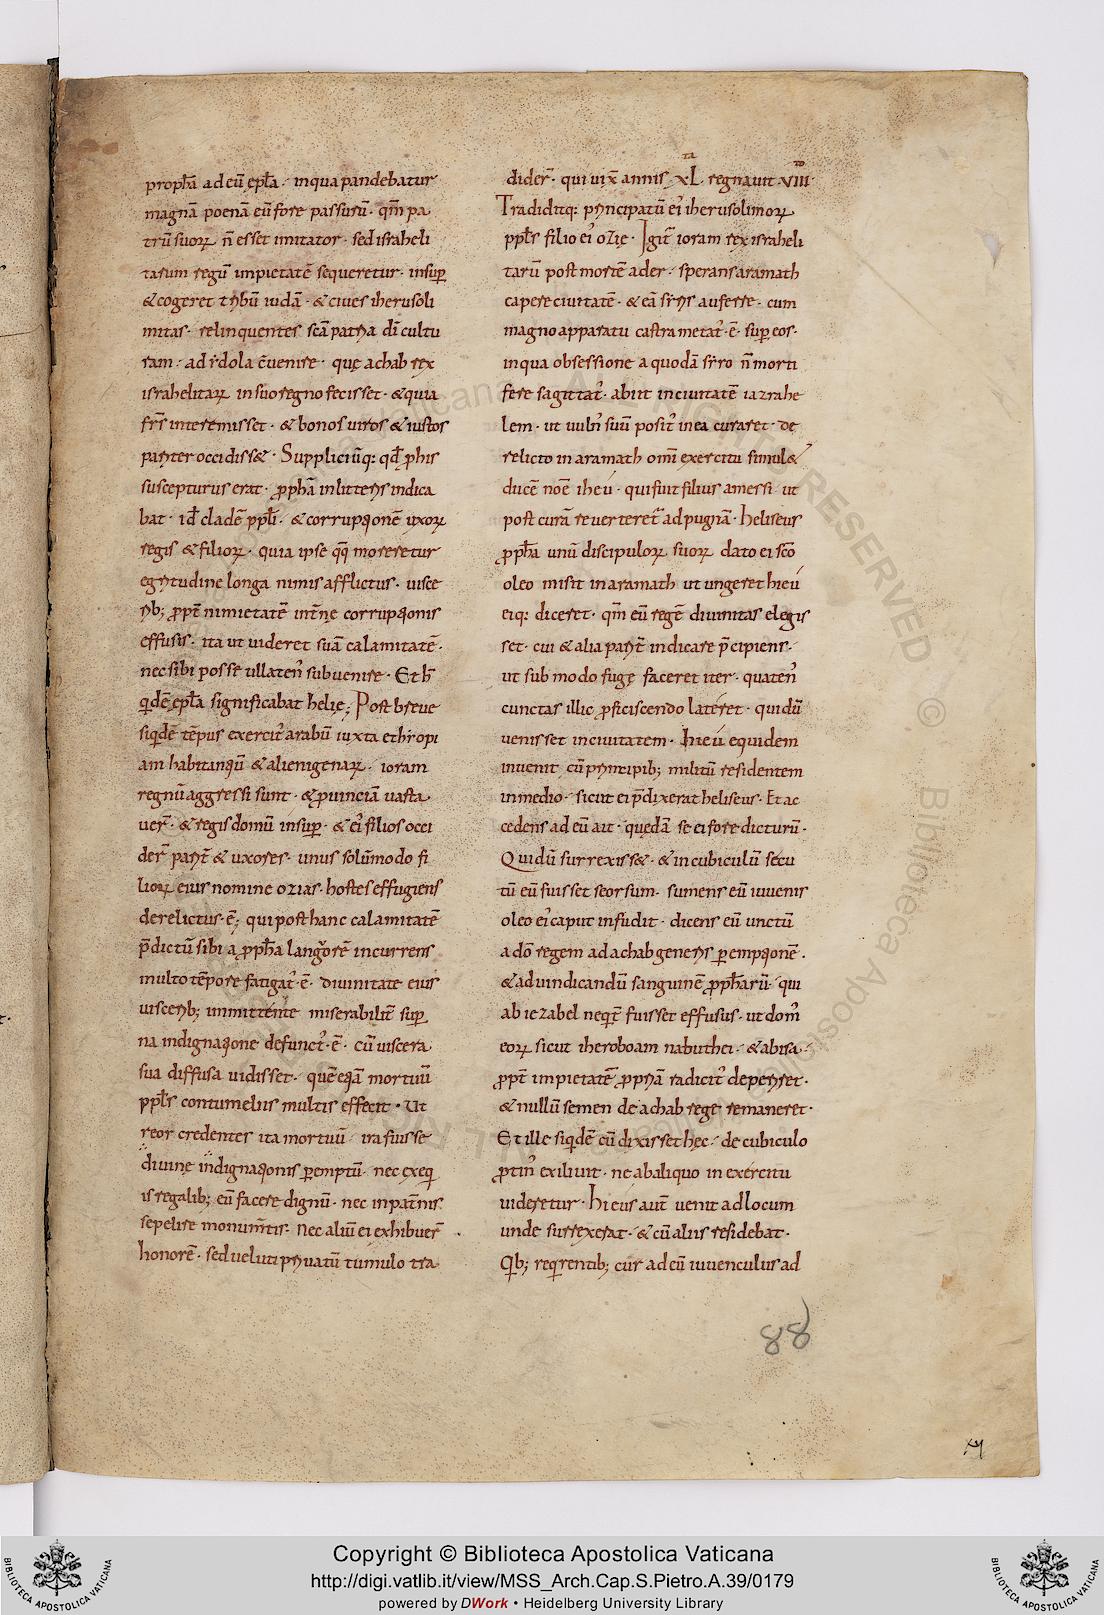 proph̄a ad eū ep̄la · in qua pandebatur
magnā poenā eū fore passurū · qm̄ pa
trū suoꝝ n̄ esset imitator · sed israheli
tarum regū impietatē sequeretur · insup̄
& cogeret tribū iudā · & ciues iherusoli
mitas · relinquentes sc̄a patria dī cultu
ram · ad ydola c̄uenire · quę achab rex
israhelitaꝝ in suo regno fecisset · & quia
fr̄s interemisset · & bonos uiros & iustos
pariter occidiss& · Suppliciūq: qd̄ p̄his
suscepturus erat · ꝓph̄a in litteris indica
bat · id̄ cladē ppl̄i · & corrupcionē uxoꝝ
regis & filioꝝ · quia ipse qq̄ moreretur
egritudine longa nimis afflictus · uisce
rib; ꝓpt̄ nimietatē int̄nę corrupcionis
effusis · ita ut uideret suā calamitatē ·
nec sibi posse ullaten᾽ subuenire · Et h̄
qidē ep̄la significabat helię; Post breue
siqidē tēpus exercit᾽ arabū iuxta ethiopi
am habitanciū & alienigenaꝝ · ioram
regnū aggressi sunt · & ꝓuinciā uasta
uer̄ · & regis domū insup̄ · & ei᾽ filios occi
der̄ parit̄ & uxores · unus solūmodo fi
lioꝝ eius nomine ozias · hostes effugiens
derelictus · ē; qui post hanc calamitatē
p̄dictū sibi a ꝓph̄a langorē incurrens
multo tēpore fatigat᾽ · ē · diuinitate eius
uiscerib; immittente miserabilit̄ sup̄
na indignacione defunct᾽ · ē · cū uiscera
sua diffusa uidisset · quē eciā mortuū
ppl̄s contumeliis multis effecit · Ut
reor credentes ita mortuū · ira fuisse
diuinę indignacionis p̄emptū · nec exeqi
is regalib; eū facere dignū · nec in pat̄nis
sepelire monum̄tis · nec aliū ei exhibuer̄
honorē · sed ueluti priuatū tumulo tra
dider̄ · qui uix̄ annis · xL regnauit VIII
Tradiditq: principatū ei᾽ iherusolimoꝝ
ppl̄s filio ei᾽ ozię · Igit̄ ioram rex israheli
tarū post mortē ader · sperans aramath
capere ciuitatē · & eā siris auferre · cum
magno apparatu castra metat᾽ · ē · sup̄ eos ·
in qua obsessione a quodā siro n̄ morti
fere sagittat᾽ · abiit in ciuitatē iazrahe
lem · ut uuln᾽ suū posit᾽ in ea curaret · de
relicto in aramath omī exercitu simul &
ducē noē iheu · qui fuit filius amessi · ut
post curā reuerteret᾽ ad pugnā · heliseus
ꝓph̄a unū discipuloꝝ suoꝝ dato ei sc̄o
oleo misit in aramath ut ungeret hieu
eiq: diceret · qm̄ eū regē diuinitas elegis
set · cui & alia parit̄ indicare p̄cipiens ·
ut sub modo fugę faceret iter · quaten᾽
cunctas illic ꝓficiscendo lateret · qui dū
uenisset in ciuitatem · hieu equidem
inuenit cū principib; militū residentem
in medio · sicut ei p̄dixerat heliseus · Et ac
cedens ad eū ait · quędā se ei fore dicturū ·
Qui dū surrexiss& · & in cubiculū secu
tū eū fuisset seorsum · sumens eū iuuenis
oleo ei᾽ caput infudit · dicens eū unctū
a do᷑ regem ad achab generis p̄empcionē ·
& ad uindicandū sanguinē ꝓph̄arū · qui
ab iezabel neqit̄ fuisset effusus · ut dom᾽
eoꝝ sicut iheroboam nabuthei · & abisa ·
ꝓpt̄ impietatē ꝓpriā radicit᾽ deperiret ·
& nullū semen de achab rege remaneret ·
Et ille siqidē cū dixisset hęc · de cubiculo
ꝓtin᾽ exiliuit · ne ab aliquo in exercitu
uideretur · hieus aut̄ uenit ad locum
unde surrexerat · & cū aliis residebat ·
Qib; reqirentib; cur ad eū iuuenculus ad
88
Copyright © Biblioteca Apostolica Vaticana
http://digi.vatlib.it/view/MSS_Arch.Cap.S.Pietro.A.39/0179
powered by DWork • Heidelberg University Library